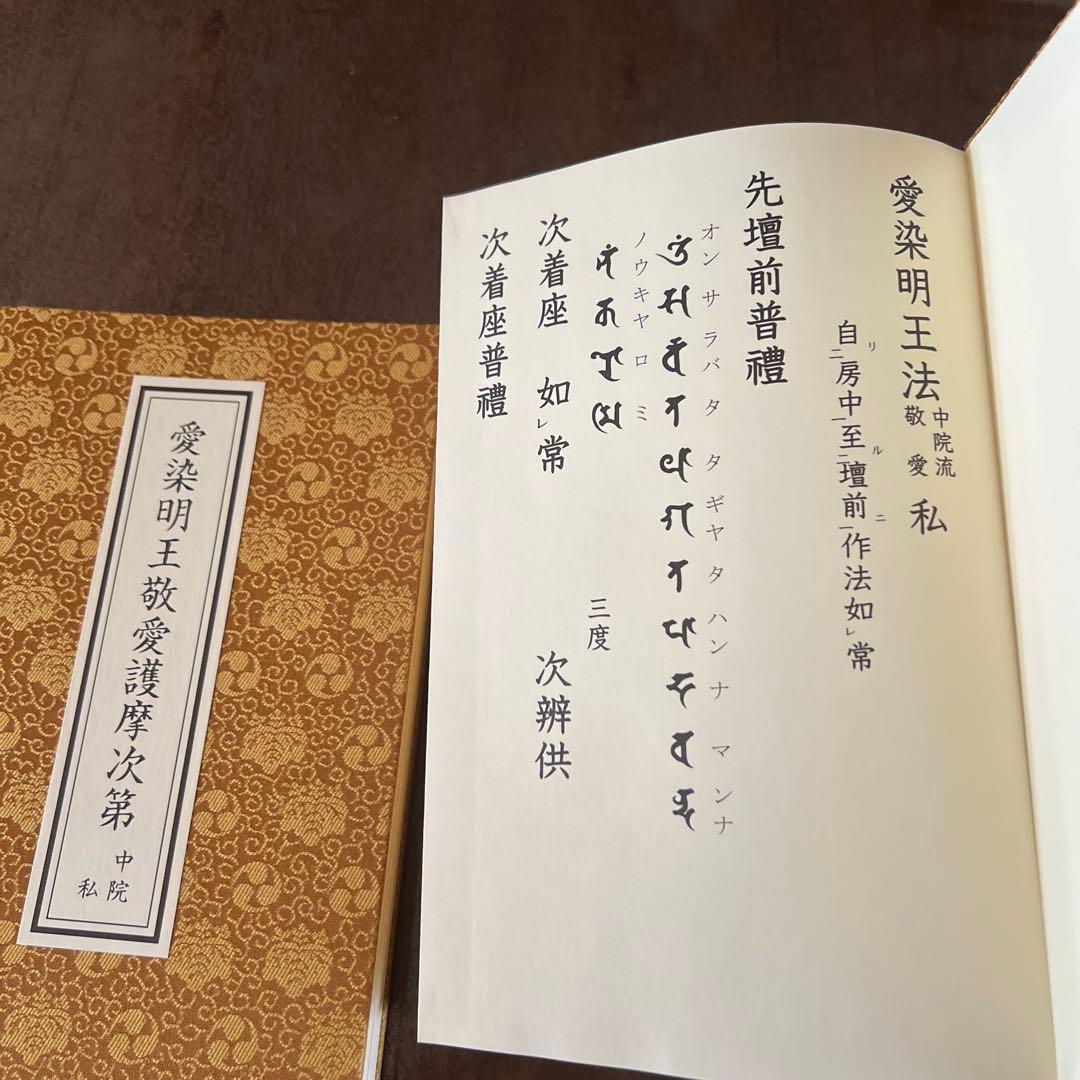 愛染明王敬愛護摩次第 中院私
愛染明王法 中院流 敬愛 私
自リ二房中一至ル二壇前ニ一作法如レ常
先壇前普禮
オン サラバ タ タギヤタ ハンナ マンナ
ノウキヤロミ
三度
次着座 如レ常 次辨供
次着座普禮